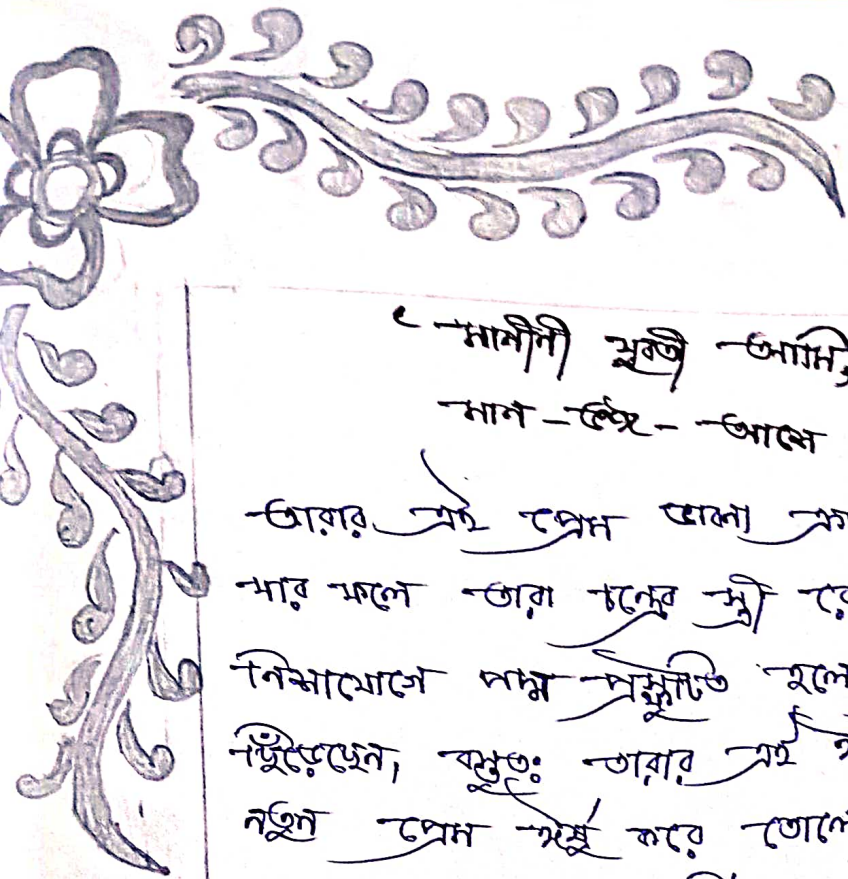 “মানীনী যুবতী আমি,
মান - - আসে
তারার এই প্রেম ভাবনা
যার ফলে তারা চন্দ্রের স্ত্রী
নিশাযোগে পদ্ম প্রস্ফুটিত হলে
ছিঁড়েছেন, বস্তুতঃ তারার এই
নতুন প্রেম করে তোলে